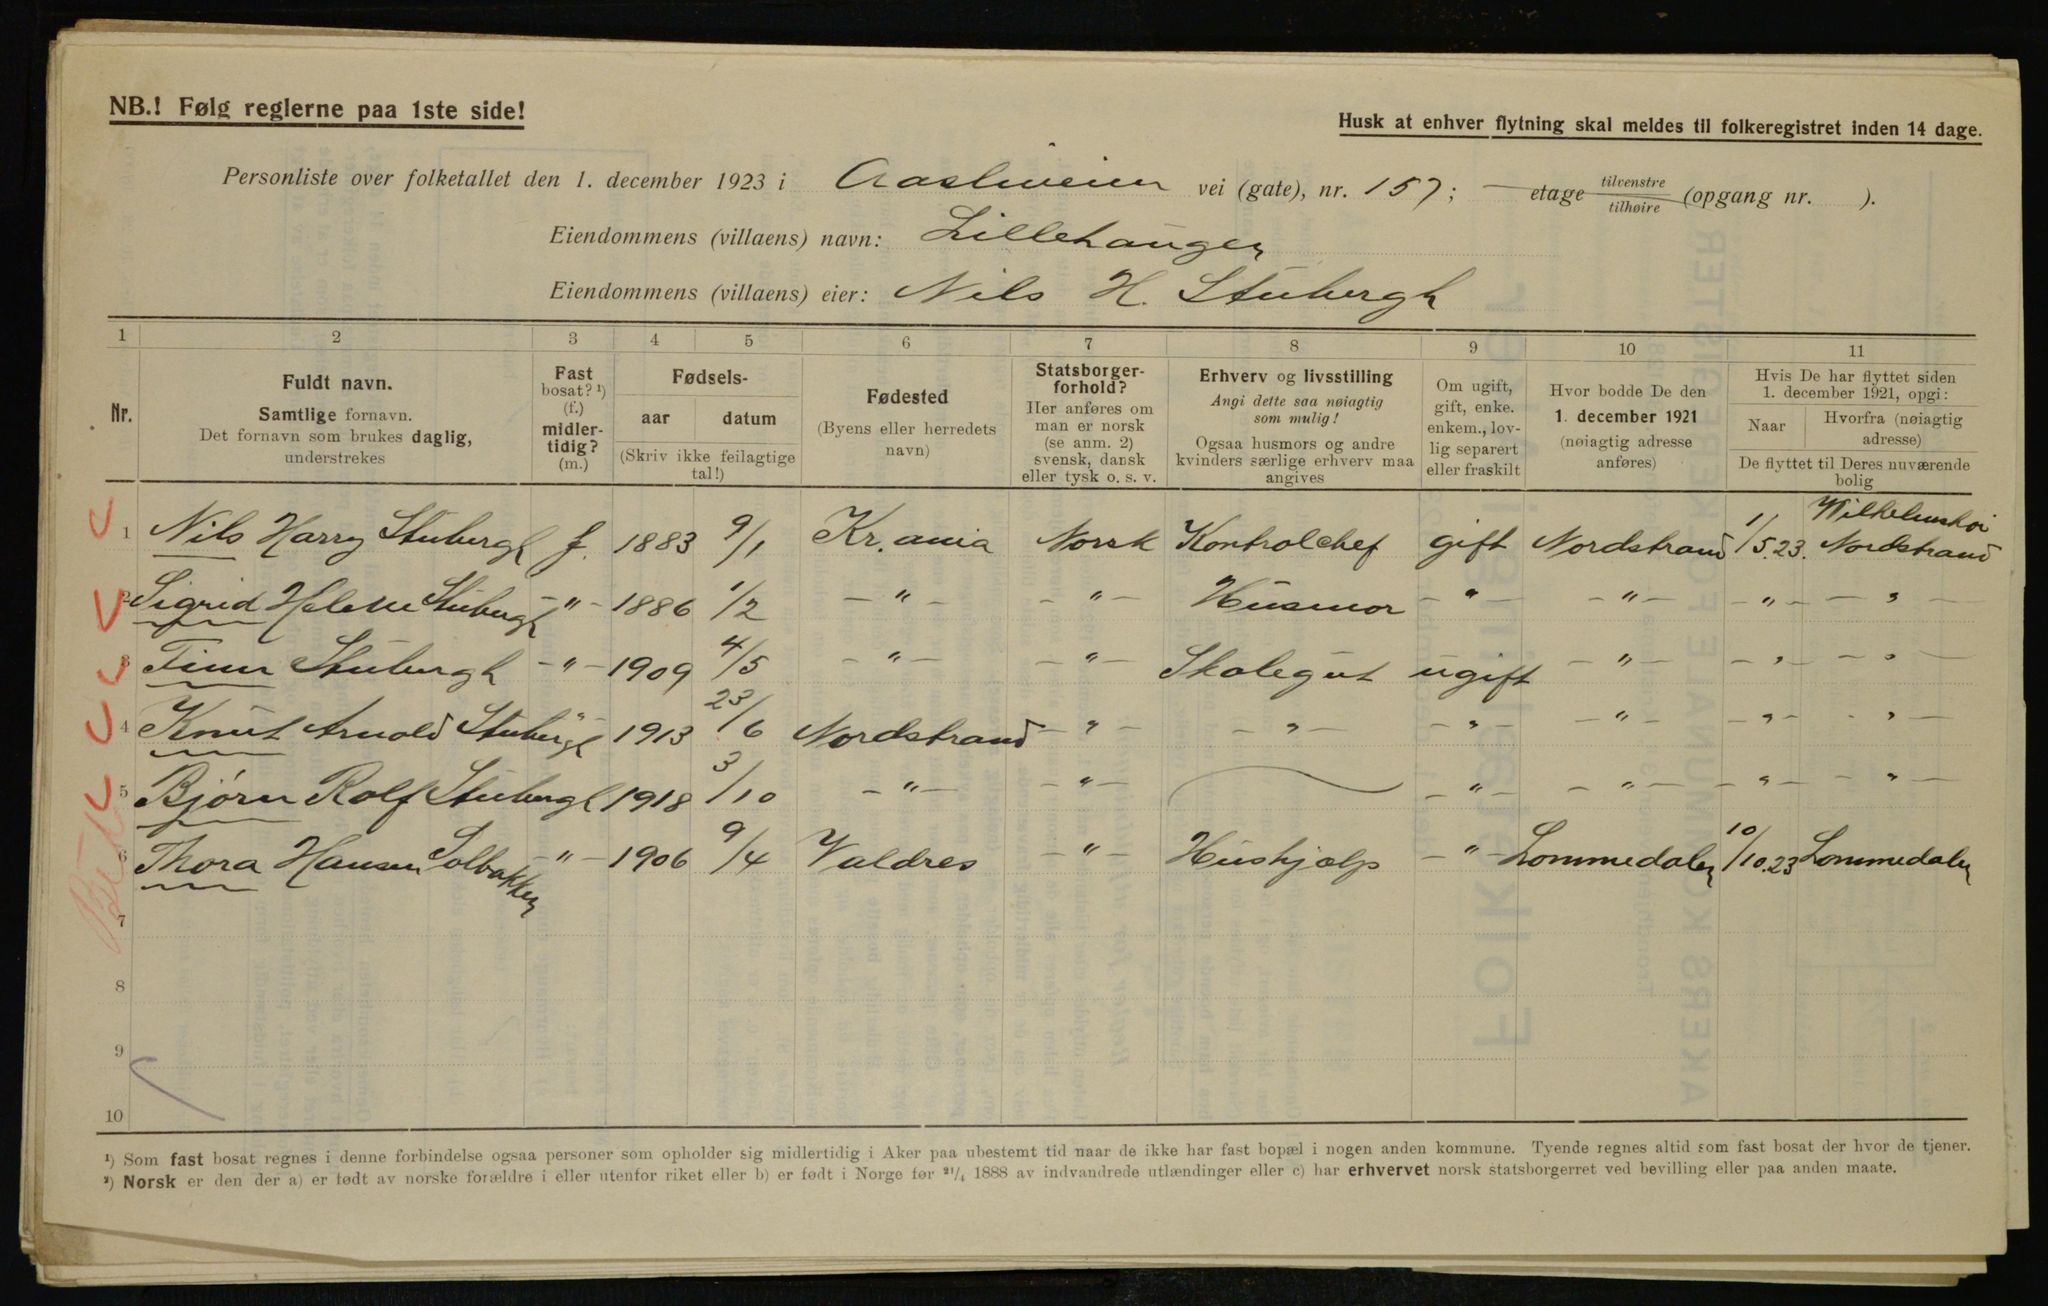 NB.! Følg reglerne paa 1ste side!
Husk at enhver flytning skal meldes til folkeregistret inden 14 dage.
Personliste over folketallet den 1. december 1923 i vei (gate), nr. 157; — etage tilvenstre tilhøire (opgang nr. ).
Eiendommens (villaens) navn: Lillehaugen
Eiendommens (villaens) eier: Nils H. Stubergh
1 2 3 4 5 6 7 8 9 10 11
Nr.
Fuldt navn.
Samtlige fornavn.
Det fornavn som brukes daglig,
understrekes
Fast
bosat? ¹)
(f.)
midler-
tidig?
(m.)
Fødsels-
aar datum
(Skriv ikke feilagtige
tal!)
Fødested
(Byens eller herredets
navn)
Statsborger-
forhold?
Her anføres om
man er norsk
(se anm. 2)
svensk, dansk
eller tysk o. s. v.
Erhverv og livsstilling
Angi dette saa nøiagtig
som mulig!
Ogsaa husmors og andre
kvinders særlige erhverv maa
angives
Om ugift,
gift, enke.
enkem., lov-
lig separert
eller fraskilt
Hvor bodde De den
1. december 1921
(nøiagtig adresse
anføres)
Hvis De har flyttet siden
1. december 1921, opgi:
Naar
Hvorfra (nøiagtig
adresse)
De flyttet til Deres nuværende
bolig
1 Nils Harry Stubergh f. 1883 9/1 Kr.ania Norsk Kontrolchef gift Nordstrand 1/5.23. Wilhelmshøi Nordstrand
2 Sigrid Helene Stubergh -"- 1886 1/2 -"- -"- Husmor -"- -"- -"- -"-
3 Finn Stubergh -"- 1909 4/5 -"- -"- Skolegut ugift -"- -"- -"-
4 Knut Arnold Stubergh " 1913 23/6 Nordstrand -"- -"- -"- -"- -"- -"-
5 Bjørn Rolf Stubergh 1918 3/10 -"- -"- — -"- -"- -"- -"-
6 Thora Hansen Solbakken -"- 1906 9/4 Valdres -"- Hushjælp -"- Lommedalen 10/10.23 Lommedalen
7
8
9
10
¹) Som fast bosat regnes i denne forbindelse ogsaa personer som opholder sig midlertidig i Aker paa ubestemt tid naar de ikke har fast bopæl i nogen anden kommune. Tyende regnes altid som fast bosat der hvor de tjener.
²) Norsk er den der a) er født av norske forældre i eller utenfor riket eller b) er født i Norge før ²¹/₄ 1888 av indvandrede utlændinger eller c) har erhvervet norsk statsborgerret ved bevilling eller paa anden maate.